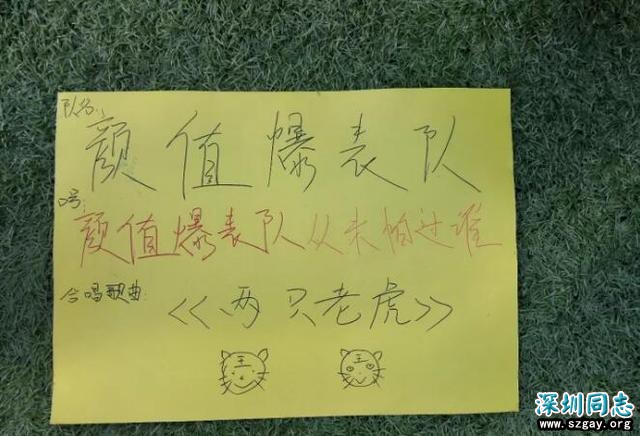 队名:
颜值爆表队
口号:
颜值爆表队从未怕过谁
合唱歌曲:
<<两只老虎>>
王 王
深圳同志
www.szgay.org